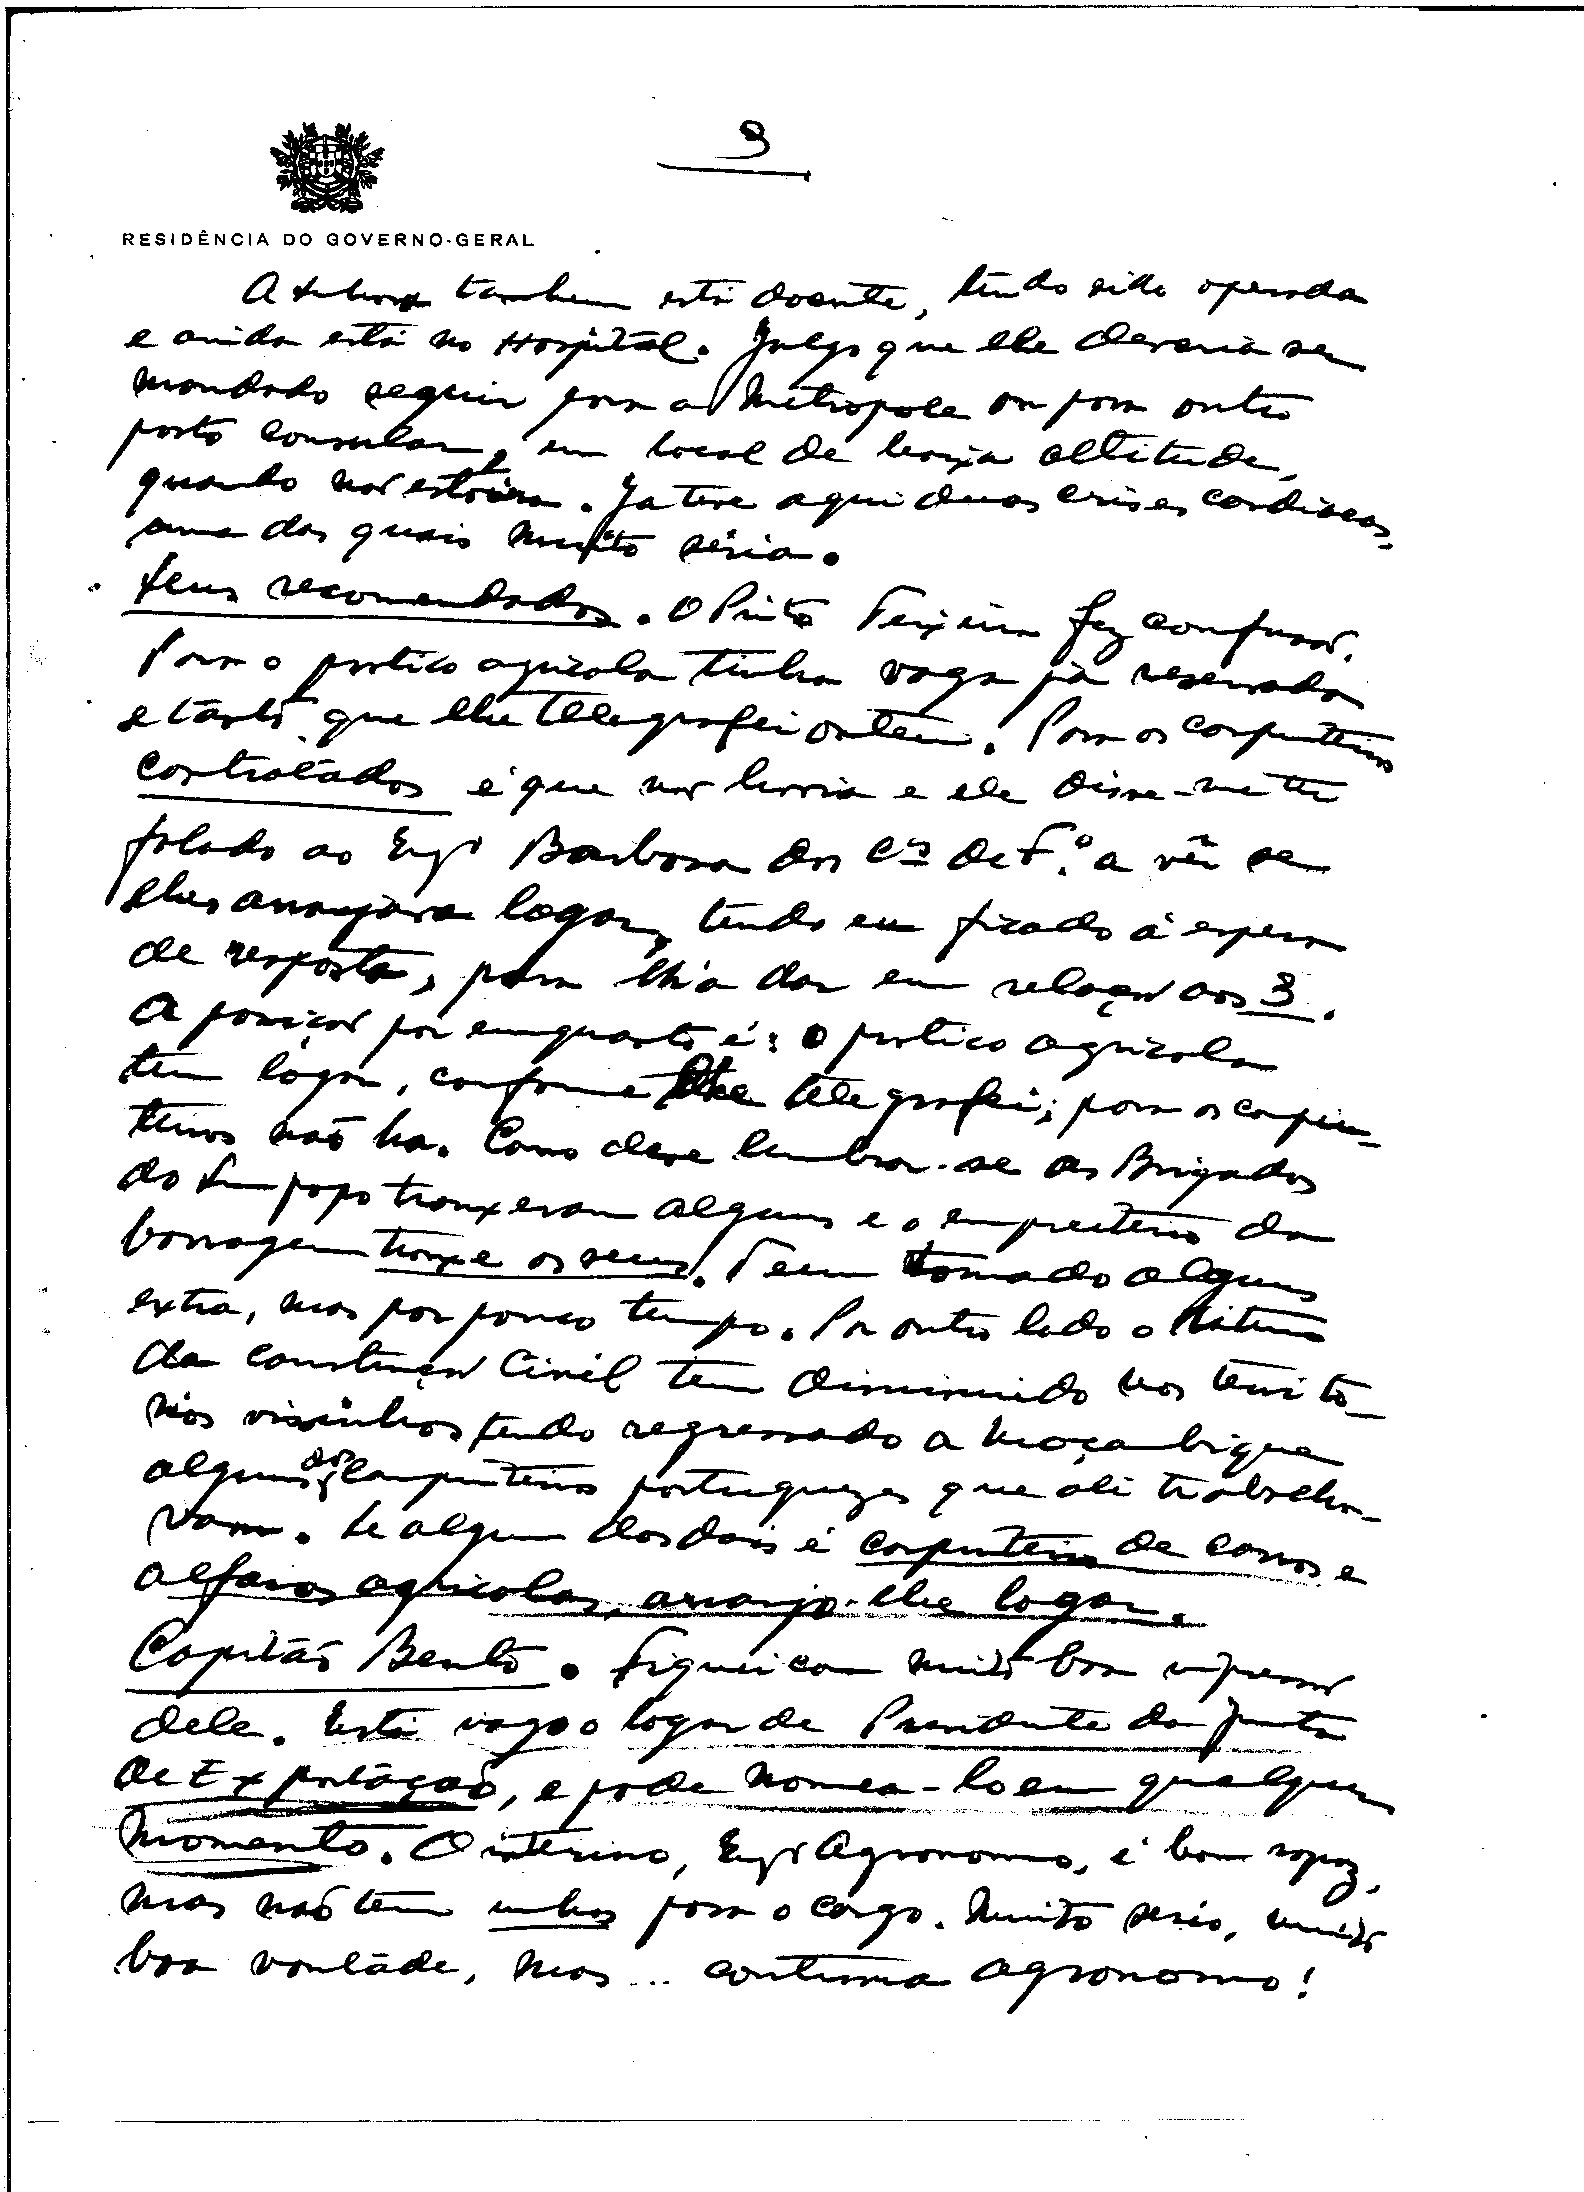 9
RESIDÊNCIA DO GOVERNO-GERAL
A senhora tambem está doente, tendo sido operada
e ainda está no Hospital. Julgo que ele deveria ser
mandado seguir para a Metropole ou para outro
posto consular, em local de baixa altitude,
quanto não estoira. Ja teve aqui duas crises cardiacas,
uma das quais muito séria.
Seus recomendados. O Pinto Teixeira fez confusão.
Para o pratico agricola tinha vaga já reservada
e tanto que lhe telegrafei ontem. Para os carpinteiros
contratados é que não havia e ele disse-me ter
falado ao Engº Barbosa dos C.os de F.º a vêr se
lhes arranjava logar, tendo eu ficado á espera
de resposta, para lh'a dar em relação aos 3.
A posição por emquanto é: o pratico agricola
tem lógar, conforme lhe telegrafei; para os carpin-
teiros não ha. Como deve lembrar-se as Brigadas
do Limpopo trouxeram alguns e o empreiteiro da
barragem trouxe os seus. Tem tomado alguns
extra, mas por pouco tempo. Por outro lado o ritmo
da construção Civil tem diminuido nos territó-
rios visinhos tendo regressado a Moçambique
alguns dos carpinteiros portuguezes que ali trabalha-
vam. Se algum dos dois é carpinteiro de carros e
alfaias agricolas, arranjo-lhe logar.
Capitão Bento. Fiquei com muito boa impressão
dele. Está vago o logar de Presidente da Junta
de Exportação, e pode nomea-lo em qualquer
momento. O interino, Engº Agronomo, é bom rapaz,
mas não tem unhas para o cargo. Muito sério, muito
boa vontade, mas... continua agronomo!